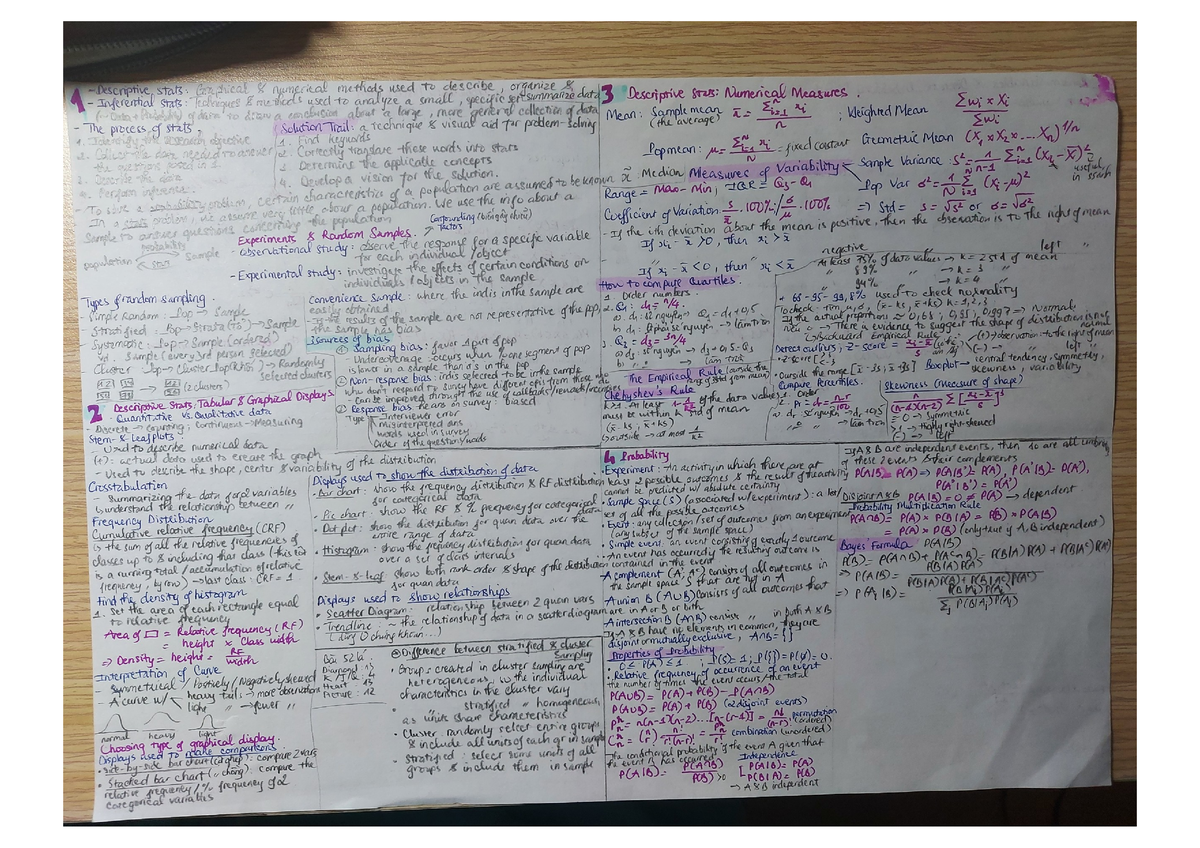 1 - Descriptive stats: Graphical & numerical methods used to describe, organize & summarize data
- Inferential stats: Techniques & methods used to analyze a small, specific set
of data to draw a conclusion about a large, more general collection of data
- The process of stats.
1. Identify the research objective
2. Collect the data needed to answer
3. Describe the data
4. Perform inference.
Solution Trail: a technique & visual aid for problem-solving
1. Find keywords
2. Correctly translate these words into stats
3. Determine the applicable concepts
4. Develop a vision for the solution.
To solve a probability problem, certain characteristics of a population are assumed to be known
In a stats problem, we assume very little about a population. We use the info about a
sample to answer questions concerning the population
probability
population sample
stats
Experiments & Random Samples.
Confounding factors
- Observational study: observe the response for a specific variable
for each individual/object
- Experimental study: investigate the effects of certain conditions on
individuals/objects in the sample
Types of random sampling.
Simple Random: Pop → Sample
Stratified: Pop → Strata → Sample
Systematic: Pop → Sample (ordered)
Sample (every 3rd person selected)
Cluster → Randomly
selected clusters
(2 clusters)
Convenience sample: where the indis in the sample are
easily obtained
- If the results of the sample are not representative of the pop,
the sample has bias
Sources of bias
① Sampling bias: favor 1 part of pop
- Undercoverage: occurs when one segment of pop
is lower in a sample than it is in the pop
② Non-response bias: indis selected to be in the sample
who don't respond to survey have different opis from those who do
- Can be improved through the use of callbacks/rewards/incentives
③ Response bias:
Type
Interviewer error
misinterpreted ans
words used in survey
Order of the question/words
2 Descriptive Stats: Tabular & Graphical Displays
Quantitative vs. Qualitative data
Discrete → Counting; Continuous → Measuring
Stem-&-Leaf plots:
- Used to describe numerical data
(+): actual data used to create the graph
- Used to describe the shape, center & variability of the distribution
Crosstabulation
- Summarizing the data of 2 variables
& understand the relationship between "
Frequency Distribution
Cumulative relative frequency (CRF)
is the sum of all the relative frequencies of
classes up to & including that class (this is
a running total / accumulation of relative
frequency, by row) → last class: CRF = 1
Find the density of histogram
1. Set the area of each rectangle equal
to relative frequency
Area of ▭ = Relative frequency (RF)
= height × class width
⇒ Density = height = RF/width
Interpretation of Curve
- Symmetrical / Positively / Negatively skewed
- A curve w/ heavy tail: → more observations
light " → fewer "
normal heavy light
Choosing type of graphical display.
Displays used to make comparisons
• side-by-side bar chart: compare 2 vars
• Stacked bar chart: compare the
relative frequency / % frequency of 2
categorical variables
Displays used to show the distribution of data
- Bar chart: show the frequency distribution & RF distribution
for categorical data
- Pie chart: show the RF & % frequency for categorical
• Dot plot: show the distribution for quan data over the
entire range of data
• Histogram: show the frequency distribution for quan data
over a set of class intervals
• Stem-&-leaf: show both rank order & shape of the distribution
for quan data
Displays used to show relationships
- Scatter Diagram: relationship between 2 quan vars
- Trendline: ~ the relationship of data in a scatter diagram
Bài 52 lá
Diamond: 13
Heart: 13
Picture: 12
⊛ Difference between stratified & cluster
sampling
• Group: created in cluster sampling are
heterogeneous, so the individual
characteristics in the cluster vary
• " stratified " homogeneous,
as units share characteristics
• Cluster: randomly select entire groups
& include all units of each gr in sample
• Stratified: select some units of all
groups & include them in sample
3 Descriptive Stats: Numerical Measures.
Mean: Sample mean x̄ = Σxi/n ; Weighted Mean Σwi × xi / Σwi
(the average)
Pop mean: μ = Σxi/N = fixed constant Geometric Mean (X₁ × X₂ × ... Xn)^1/n
x̃ Median Measures of Variability Sample Variance: s² = 1/(n-1) Σ(xi - x̄)²
Range = Max - Min; IQR = Q3 - Q1 Pop Var σ² = 1/N Σ(xi - μ)²
Coefficient of Variation: s/x̄ . 100% / σ/μ . 100% ⇒ Std = s = √s² or σ = √σ²
- If the ith deviation about the mean is positive, then the observation is to the right of mean
If xi - x̄ > 0, then xi > x̄
negative left "
If xi - x̄ < 0, then xi < x̄
How to compute Quartiles.
1. Order numbers
2. Q1: d1 = n/4
Q3: d3 = 3n/4
The Empirical Rule
Chebyshev's Rule
k>1: At least 1 - 1/k² of the data values
must be within k std of mean
(x̄ - ks, x̄ + ks)
→ outside → at most 1/k²
At least 75% of data values → k = 2 std of mean
89% " → k = 3 "
94% " → k = 4 "
+ 68 - 95 - 99,8% used to check normality
If the actual proportion ≈ 0,68; 0,95; 0,997 ⇒ normal
→ There is evidence to suggest the shape of distribution is not normal
Backward Empirical Rule
Detect outliers: Z-score = (xi - x̄)/s
• Outside the range [x̄ - 3s; x̄ + 3s]
Boxplot → central tendency, symmetry,
skewness, variability
Compute Percentiles.
1. Order
Skewness (measure of shape)
n/((n-1)(n-2)) Σ[(xi - x̄)/s]³
= 0 → symmetric
(+) → right-skewed
(-) → left "
4 Probability
• Experiment: An activity in which there are at
least 2 possible outcomes & the result of the activity
cannot be predicted w/ absolute certainty
• Sample space (S) (associated w/ experiment): a list/
set of all the possible outcomes
• Event: any collection/set of outcomes from an experiment
(any subset of the sample space)
• Simple event: an event consisting of exactly 1 outcome
• An event has occurred if the resulting outcome is
contained in the event
• A complement (A', Aᶜ) consists of all outcomes in
the sample space S that are not in A
• A union B (A∪B) consists of all outcomes that
are in A or B or both
• A intersection B (A∩B) consist " in both A & B
If A & B have no elements in common, they are
disjoint or mutually exclusive, A∩B = { }
Properties of Probability
0 ≤ P(A) ≤ 1; P(S) = 1; P({}) = P(∅) = 0.
• Relative frequency of occurrence of an event
the number of times the event occurs / the total
P(A∪B) = P(A) + P(B) - P(A∩B)
P(A∪B) = P(A) + P(B) (2 disjoint events)
= n(n-1)(n-2)...[n-(r-1)] = n!/(n-r)! permutation (ordered)
= n!/r!(n-r)! combination (unordered)
The conditional probability of the event A given that
the event B has occurred
P(A|B) = P(A∩B)/P(B)
Independence
P(A|B) = P(A)
P(B|A) = P(B)
→ A & B independent
If A & B are independent events, then so are all combing
of these 2 events & their complements
P(A|B) = P(A) ⇒ P(A|B') = P(A), P(A'|B) = P(A'),
P(A'|B') = P(A')
Disjoint A & B P(A|B) = 0 ≠ P(A) → dependent
Probability Multiplication Rule
P(A∩B) = P(A) × P(B|A) = P(B) × P(A|B)
= P(A) × P(B) (only true if A, B independent)
Bayes Formula P(A|B)
P(B) = P(A∩B) + P(Aᶜ∩B) = P(B|A)P(A) + P(B|Aᶜ)P(Aᶜ)
⇒ P(A|B) = P(B|A)P(A) / P(B|A)P(A) + P(B|Aᶜ)P(Aᶜ)
⇒ P(Ai|B) = P(B|Ai)P(Ai) / Σj P(B|Aj)P(Aj)